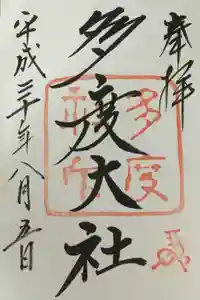 奉拝
多度大社
平成三十年八月五日
多度